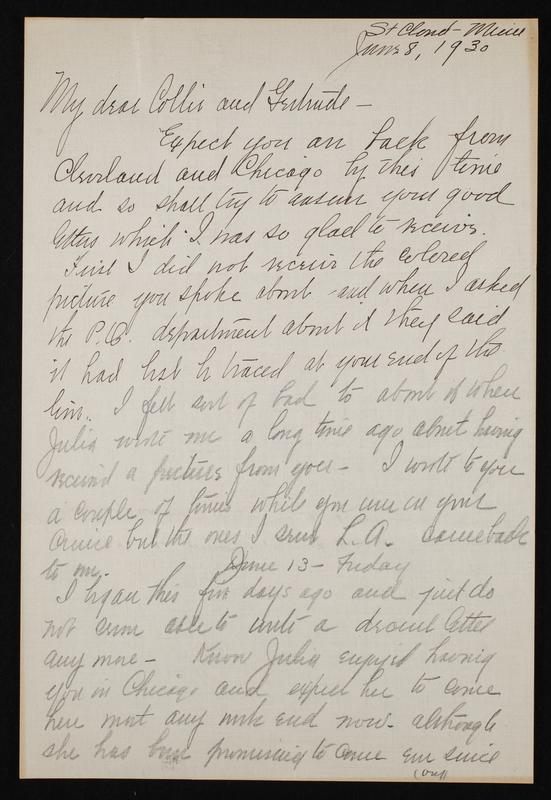 St Cloud - Minn
June 8, 1930
My dear Collis and Gertrude -
Expect you are back from
Cleveland and Chicago by this time
and so shall try to answer your good
letters which I was so glad to receive.
First I did not receive the colored
picture you spoke about - and when I asked
the P.O. department about it they said
it had best be traced at your end of the
line. I felt sort of bad to about it when
Julia wrote me a long time ago about having
received a picture from you - I wrote to you
a couple of times while you were on your
cruise but the ones I sent L.A. came back
to me. June 13 - Friday
I began this five days ago and just do
not seem able to write a decent letter
any more - Know Julia enjoyed having
you in Chicago and expect her to come
here most any week end now - although
she has been promising to come ever since
(over)